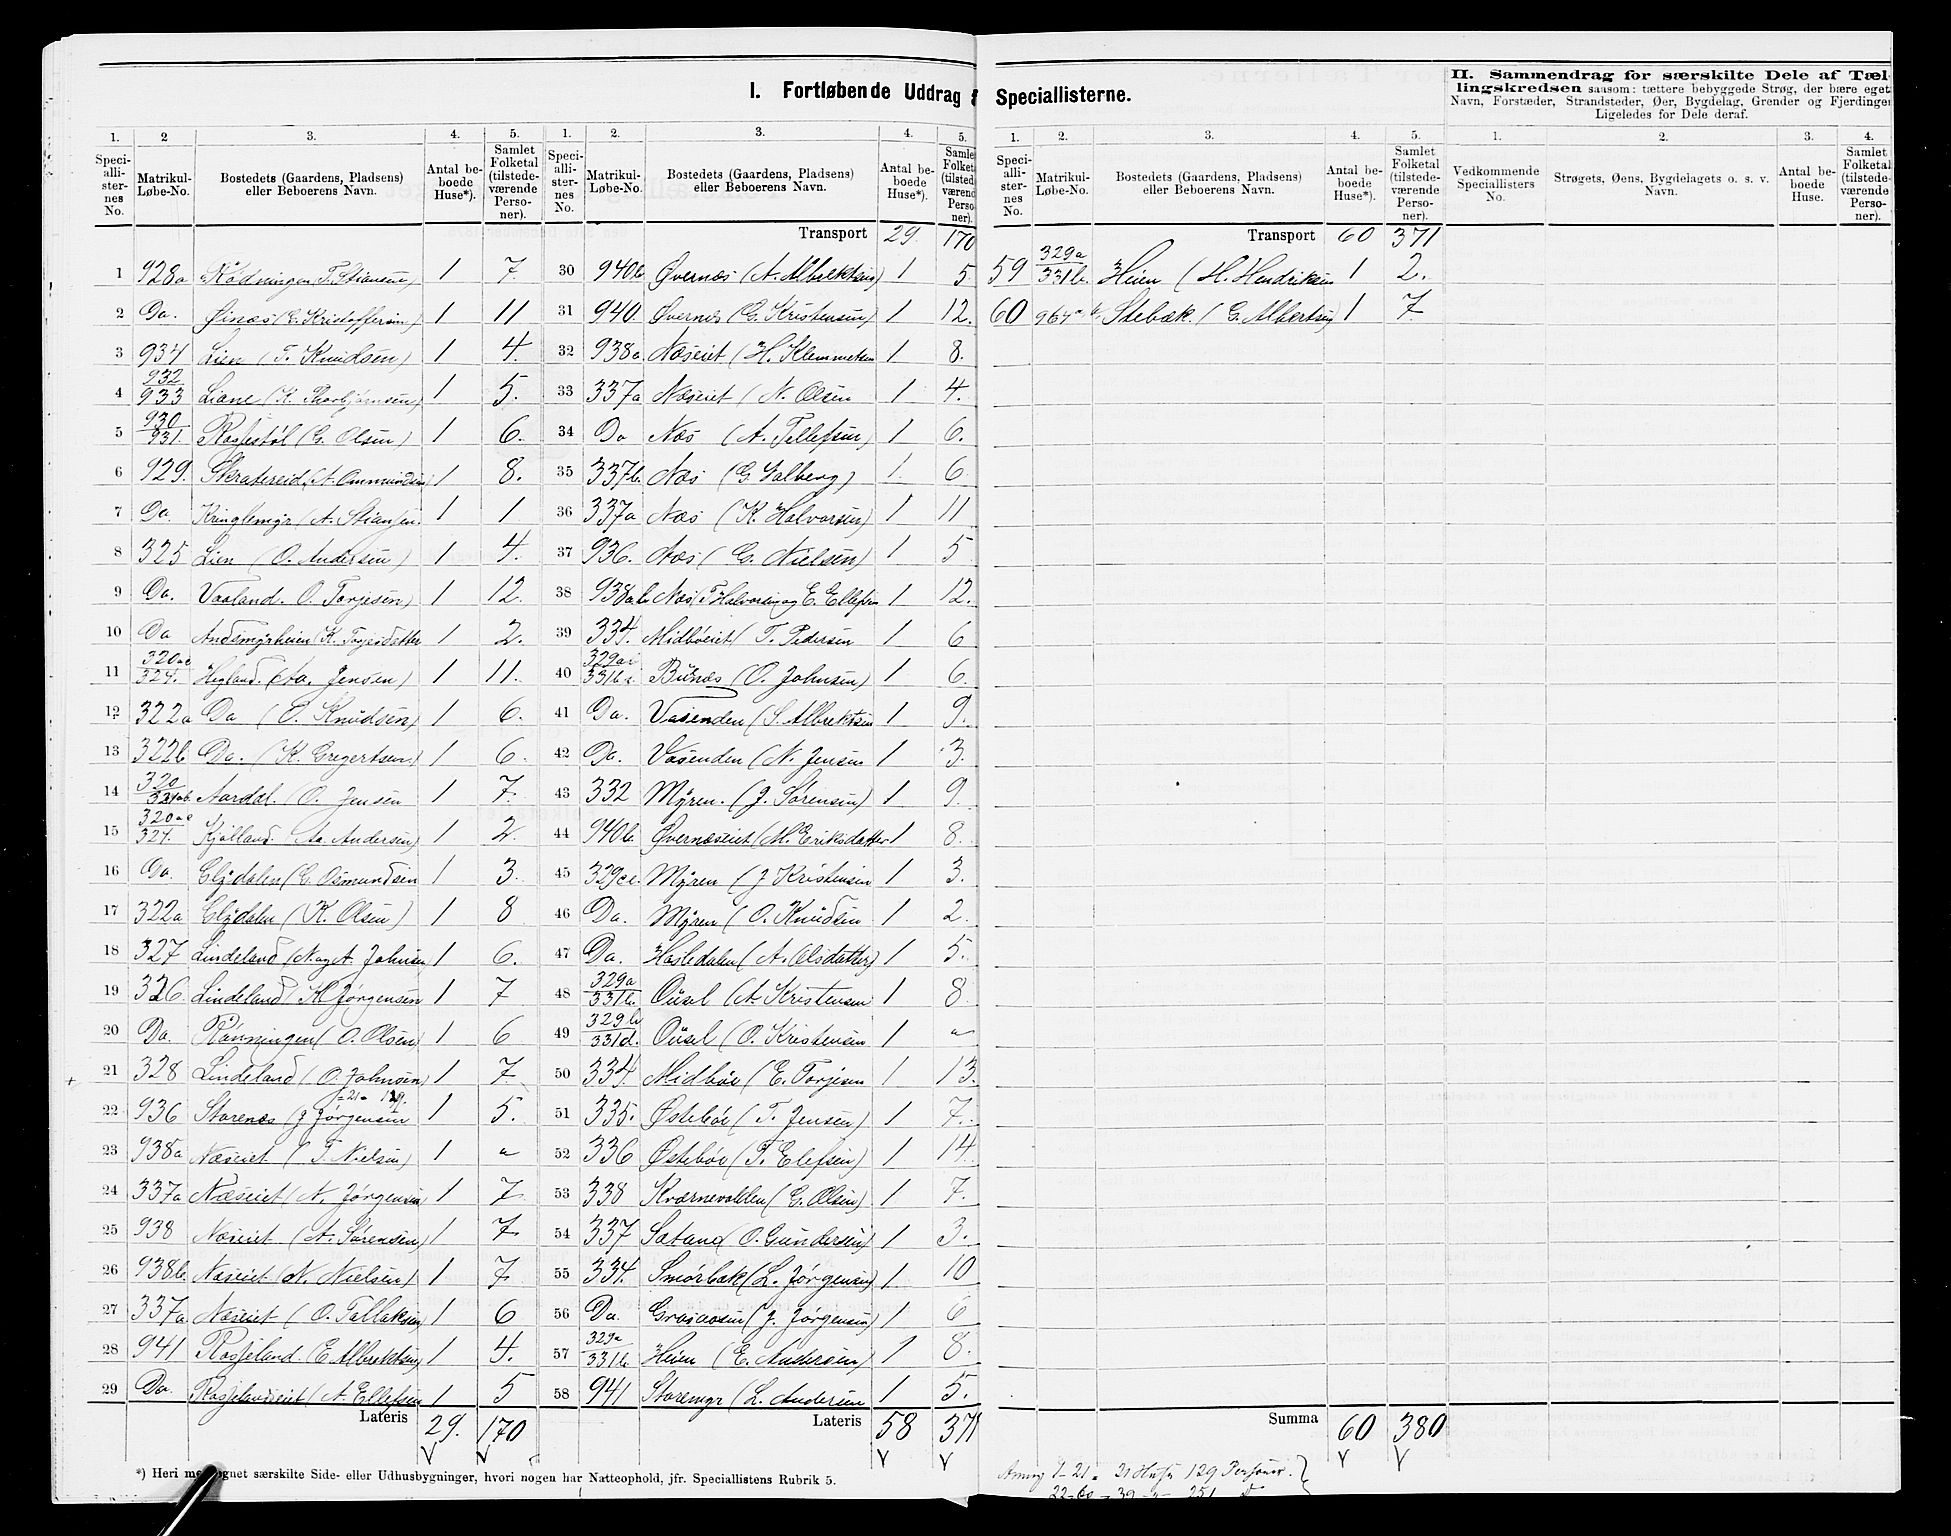 I. Fortløbende Uddrag f Speciallisterne.
II. Sammendrag for særskilte Dele af Tæl-
lingskredsen saasom: tættere bebyggede Strøg, der bære eget
Navn, Forstæder, Strandsteder, Øer, Bygdelag, Grender og Fjerdinger
Ligeledes for Dele deraf.
1. 2 3. 4. 5. 1. 2. 3. 4. 5. 1. 2. 3. 4. 5. 1. 2. 3. 4.
Speci-alli-ster-nes No. Matrikul-Løbe-No. Bostedets (Gaardens, Pladsens) eller Beboerens Navn. Antal be-boede Huse*). Samlet Folketal (tilstede-værende Perso-ner).
Speci-alli-ster-nes No. Matrikul-Løbe-No. Bostedets (Gaardens, Pladsens) eller Beboerens Navn. Antal be-boede Huse*). Samlet Folketal (tilstede-værende Perso-ner).
Speci-alli-ster-nes No. Matrikul-Løbe-No. Bostedets (Gaardens, Pladsens) eller Beboerens Navn. Antal be-boede Huse*). Samlet Folketal (tilstede-værende Perso-ner).
Vedkommende Speciallisters No. Strøgets, Øens, Bygdelagets o. s. v. Navn. Antal be-boede Huse. Samlet Folketal (tilstede-værende Perso-ner).
1 928a Rødningen T. Stiansen) 1 7.
2 Do. Øinæs (E. Kristoffersen) 1 11
3 934 Lien (T. Knudsen) 1 4.
4 932/933 Liane (K. Thorbjørnsen) 1 5.
5 930/931. Rosfistøl (G. Olsen) 1 6.
6 929. Skratereid (A. Ommundsen) 1 8.
7 Do. Kringlemyr (A. Stiansen. 1 1
8 325 Lien (O. Andersen) 1 4.
9 Do. Vaaland. O. Torjesen) 1 12.
10 Do Andsmyrheien (K. 1 2.
11 320ae/324. Hegland. (Aa. Jensen) 1 11.
12 322a Do (O. Knudsen) 1 6.
13 322b Do. (K. Gregertsen) 1 6.
14 320/321ab. Aardal. (O. Jensen 1 7.
15 320ae/324. Kjølland. (Aa. Andersen) 1 2.
16 Do. Clydalen (G. Osmundsen 1 3.
17 322a Clydalen (K. Olsen) 1 8
18 327 Lindeland (N. og A. Johnsen 1 6.
19 326. Lindeland (K Jørgensen 1 7
20 Do. Rønningen (O. Olsen) 1 6
21 328 Lindeland (O. Johnsen) 1 7
=21= 129.
22 936 Storenæs (J Jørgensen 1 5.
23 938a Næseiet (T. Nielsen) 1 "
24 337a Næseiet (N. Jørgensen 1 7
25 938 Næseiet (A. Sørensen) 1 7
26 938b. Næseiet (N. Nielsen) 1 7
27 337a. Næseiet (O. Tallaksen) 1 6
28 941 Rosfjeland. (E. Albrektsen) 1 4.
29 Do. Rosfjelandseiet (A. Ellefsen 1 5
Lateris 29. 170
Transport 29 170
30 940b. Øvernæs (A. Albrektsen) 1 5.
31 940. Øvernæs (G. Kristensen) 1 12.
32 938a Næseiet (H. Klemmetsen 1 8.
33 337a Næseiet (N. Olsen 1 4.
34 Do Næs (A. Tellefsen) 1 6.
35 337b. Næs (G. Salberg) 1. 6
36 337a Næs (K. Halvorsen) 1 11
37 936. Næs (G. Nielsen) 1 5
38 938ab Næs (T Halvorsen og E. Ellefsen 1 12.
39 334. Midbøeiet (T. Pedersen 1 6
40 Bunæs (O. Johnsen) 1 6.
41 Do. Vasenden (S. Albrektsen 1 9.
42 Do. Vasenden (N. Jensen 1 3.
43 332 Myren. (J. Sørensen) 1 9.
44 940b. Øvernæseiet (M. Eriksdatter 1 8.
45 329 Myren (J Kristensen 1 3.
46 Do. Myren (O. Knudsen 1 2.
47 Do. Hasledalen (A. Olsdatter) 1 5.
48 329a/331b. Ousel (A. Kristensen 1 8
49 329b/331d. Ousel (O. Kristensen 1 "
50 334. Midbøe (E. Torjesen 1 13.
51 335. Østebøe (T. Jensen) 1 7.
52 336 Østebøe (T. Elefsen) 1 14.
53 338 Kværnevolden (G. Olsen) 1 7.
54 337 Satand (O. Gundersen) 1 3.
55 334. Smörbak (L. Jørgensen) 1 10
56 Do. (J. Jørgensen) 1 6
57 329a/331b. Heien (E. Andersen) 1 8.
58 941 Storemyr (L. Andersen 1 5.
Lateris 58 371
Transport 60 371
59 329a/331b. Heien (H. Hendriksen 1 2.
60 Stebæk. (G. Albertsen) 1 7.
Summa 60 380
*) Heri me ognet særskilte Side- eller Udhusbygninger, hvori nogen har Natteophold, jfr. Speciallistens Rubrik 5.
1-21 = 21 Huse 129 Personer.
22-60 - 39 -"- 251 Do